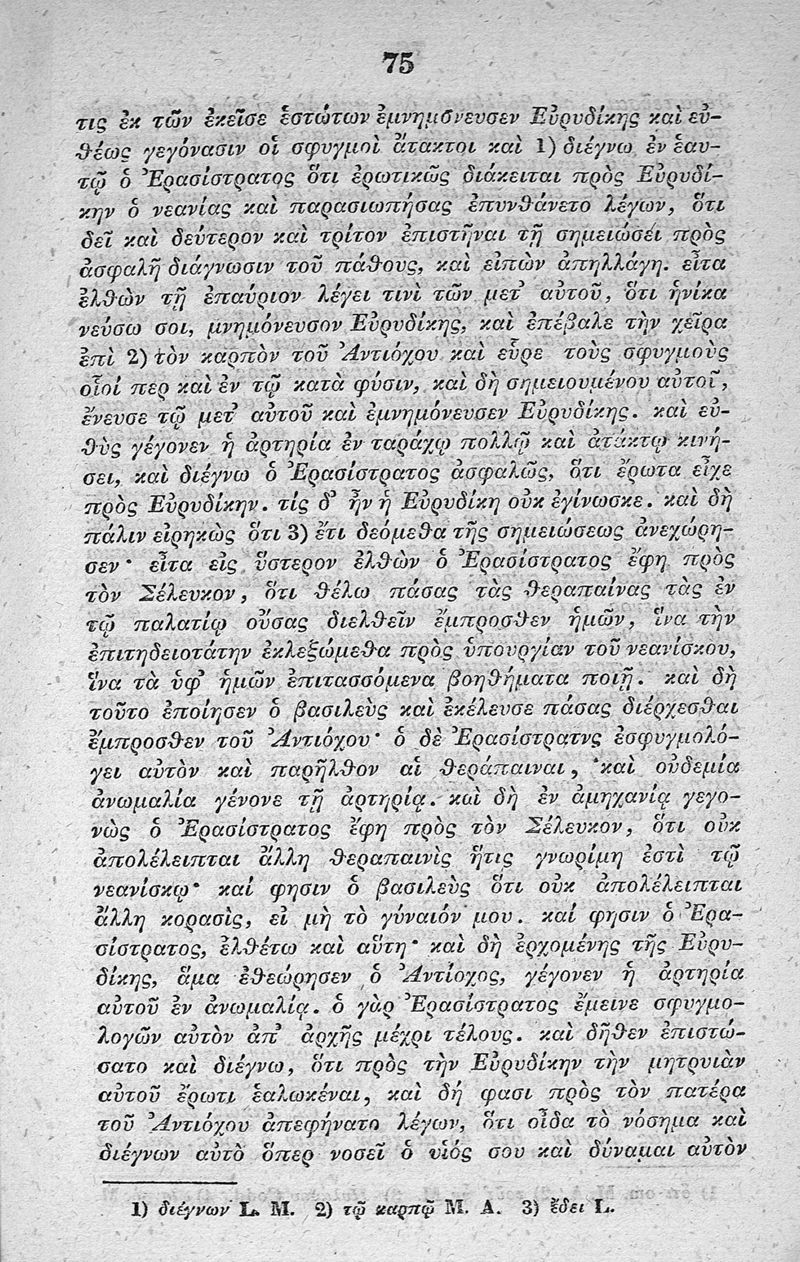 75
τις ἐκ τῶν ἐκεῖσε ἑστώτων ἐμνημόνευσεν Εὐρυδίκης καὶ εὐ-
θέως γεγόνασιν οἱ σφυγμοὶ ἄτακτοι καὶ 1) διέγνω ἐν ἑαυ-
τῷ ὁ Ἐρασίστρατος ὅτι ἐρωτικῶς διάκειται πρὸς Εὐρυδί-
κην ὁ νεανίας καὶ παρασιωπήσας ἐπυνθάνετο λέγων, ὅτι
δεῖ καὶ δεύτερον καὶ τρίτον ἐπιστῆναι τῇ σημειώσει πρὸς
ἀσφαλῆ διάγνωσιν τοῦ πάθους, καὶ εἰπὼν ἀπηλλάγη. εἶτα
ἐλθὼν τῇ ἐπαύριον λέγει τινὶ τῶν μετ’ αὐτοῦ, ὅτι ἡνίκα
νεύσω σοι, μνημόνευσον Εὐρυδίκης, καὶ ἐπέβαλε τὴν χεῖρα
ἐπὶ 2) τὸν καρπὸν τοῦ Ἀντιόχου καὶ εὗρε τοὺς σφυγμοὺς
οἷοί περ καὶ ἐν τῷ κατὰ φύσιν, καὶ δὴ σημειουμένου αὐτοῦ,
ἔνευσε τῷ μετ’ αὐτοῦ καὶ ἐμνημόνευσεν Εὐρυδίκης. καὶ εὐ-
θὺς γέγονεν ἡ ἀρτηρία ἐν ταράχῳ πολλῷ καὶ ἀτάκτῳ κινή-
σει, καὶ διέγνω ὁ Ἐρασίστρατος ἀσφαλῶς, ὅτι ἔρωτα εἶχε
πρὸς Εὐρυδίκην. τίς δ’ ἦν ἡ Εὐρυδίκη οὐκ ἐγίνωσκε. καὶ δὴ
πάλιν εἰρηκὼς ὅτι 3) ἔτι δεόμεθα τῆς σημειώσεως ἀνεχώρη-
σεν· εἶτα εἰς ὕστερον ἐλθὼν ὁ Ἐρασίστρατος ἔφη πρὸς
τὸν Σέλευκον, ὅτι θέλω πάσας τὰς θεραπαίνας τὰς ἐν
τῷ παλατίῳ οὔσας διελθεῖν ἔμπροσθεν ἡμῶν, ἵνα τὴν
ἐπιτηδειοτάτην ἐκλεξώμεθα πρὸς ὑπουργίαν τοῦ νεανίσκου,
ἵνα τὰ ὑφ’ ἡμῶν ἐπιτασσόμενα βοηθήματα ποιῇ. καὶ δὴ
τοῦτο ἐποίησεν ὁ βασιλεὺς καὶ ἐκέλευσε πάσας διέρχεσθαι
ἔμπροσθεν τοῦ Ἀντιόχου· ὁ δὲ Ἐρασίστρατνς ἐσφυγμολό-
γει αὐτὸν καὶ παρῆλθον αἱ θεράπαιναι, καὶ οὐδεμία
ἀνωμαλία γένονε τῇ ἀρτηρίᾳ. καὶ δὴ ἐν ἀμηχανίᾳ γεγο-
νὼς ὁ Ἐρασίστρατος ἔφη πρὸς τὸν Σέλευκον, ὅτι οὐκ
ἀπολέλειπται ἄλλη θεραπαινὶς ἥτις γνωρίμη ἐστὶ τῷ
νεανίσκῳ· καί φησιν ὁ βασιλεὺς ὅτι οὐκ ἀπολέλειπται
ἄλλη κορασὶς, εἰ μὴ τὸ γύναιόν μου. καί φησιν ὁ Ἐρα-
σίστρατος, ἐλθέτω καὶ αὕτη· καὶ δὴ ἐρχομένης τῆς Εὐρυ-
δίκης, ἅμα ἐθεώρησεν ὁ Ἀντίοχος, γέγονεν ἡ ἀρτηρία
αὐτοῦ ἐν ἀνωμαλίᾳ. ὁ γὰρ Ἐρασίστρατος ἔμεινε σφυγμο-
λογῶν αὐτὸν ἀπ’ ἀρχῆς μέχρι τέλους. καὶ δῆθεν ἐπιστώ-
σατο καὶ διέγνω, ὅτι πρὸς τὴν Εὐρυδίκην τὴν μητρυιὰν
αὐτοῦ ἔρωτι ἑαλωκέναι, καὶ δή φασι πρὸς τὸν πατέρα
τοῦ Ἀντιόχου ἀπεφήνατο λέγων, ὅτι οἶδα τὸ νόσημα καὶ
διέγνων αὐτὸ ὅπερ νοσεῖ ὁ υἱός σου καὶ δύναμαι αὐτὸν
1) διέγνων L. M. 2) τῷ καρπῷ M. A. 3) ἔδει L.